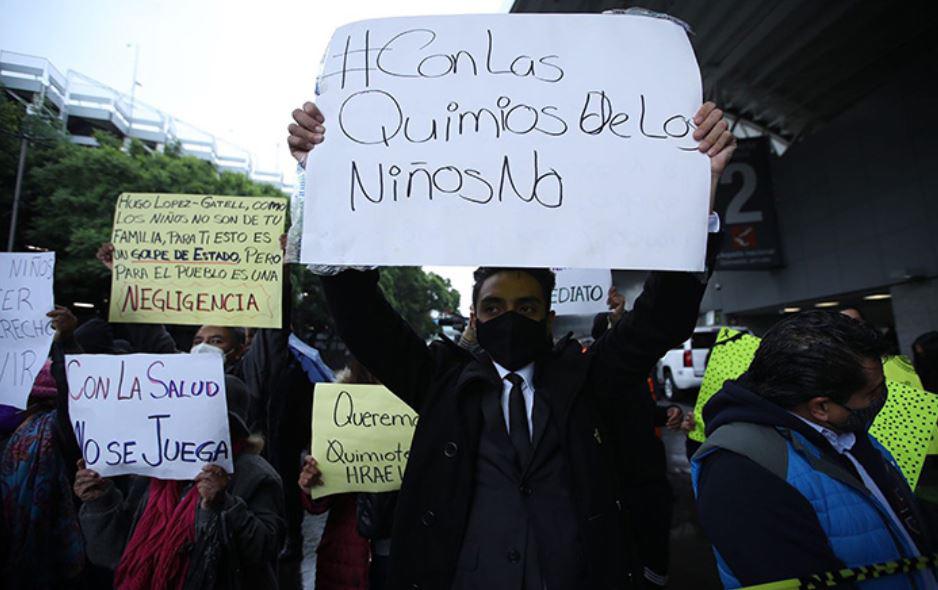 #ConLas
QuimiosDeLos
NiñosNo
HUGO LOPEZ-GATELL, COMO
LOS NIÑOS NO SON DE TU
FAMILIA, PARA TI ESTO ES
UN GOLPE DE ESTADO, PERO
PARA EL PUEBLO ES UNA
NEGLIGENCIA
NIÑOS
CON LA SALUD
NO SE JUEGA
Querem
Quimiote
HRAE
EDIATO
2